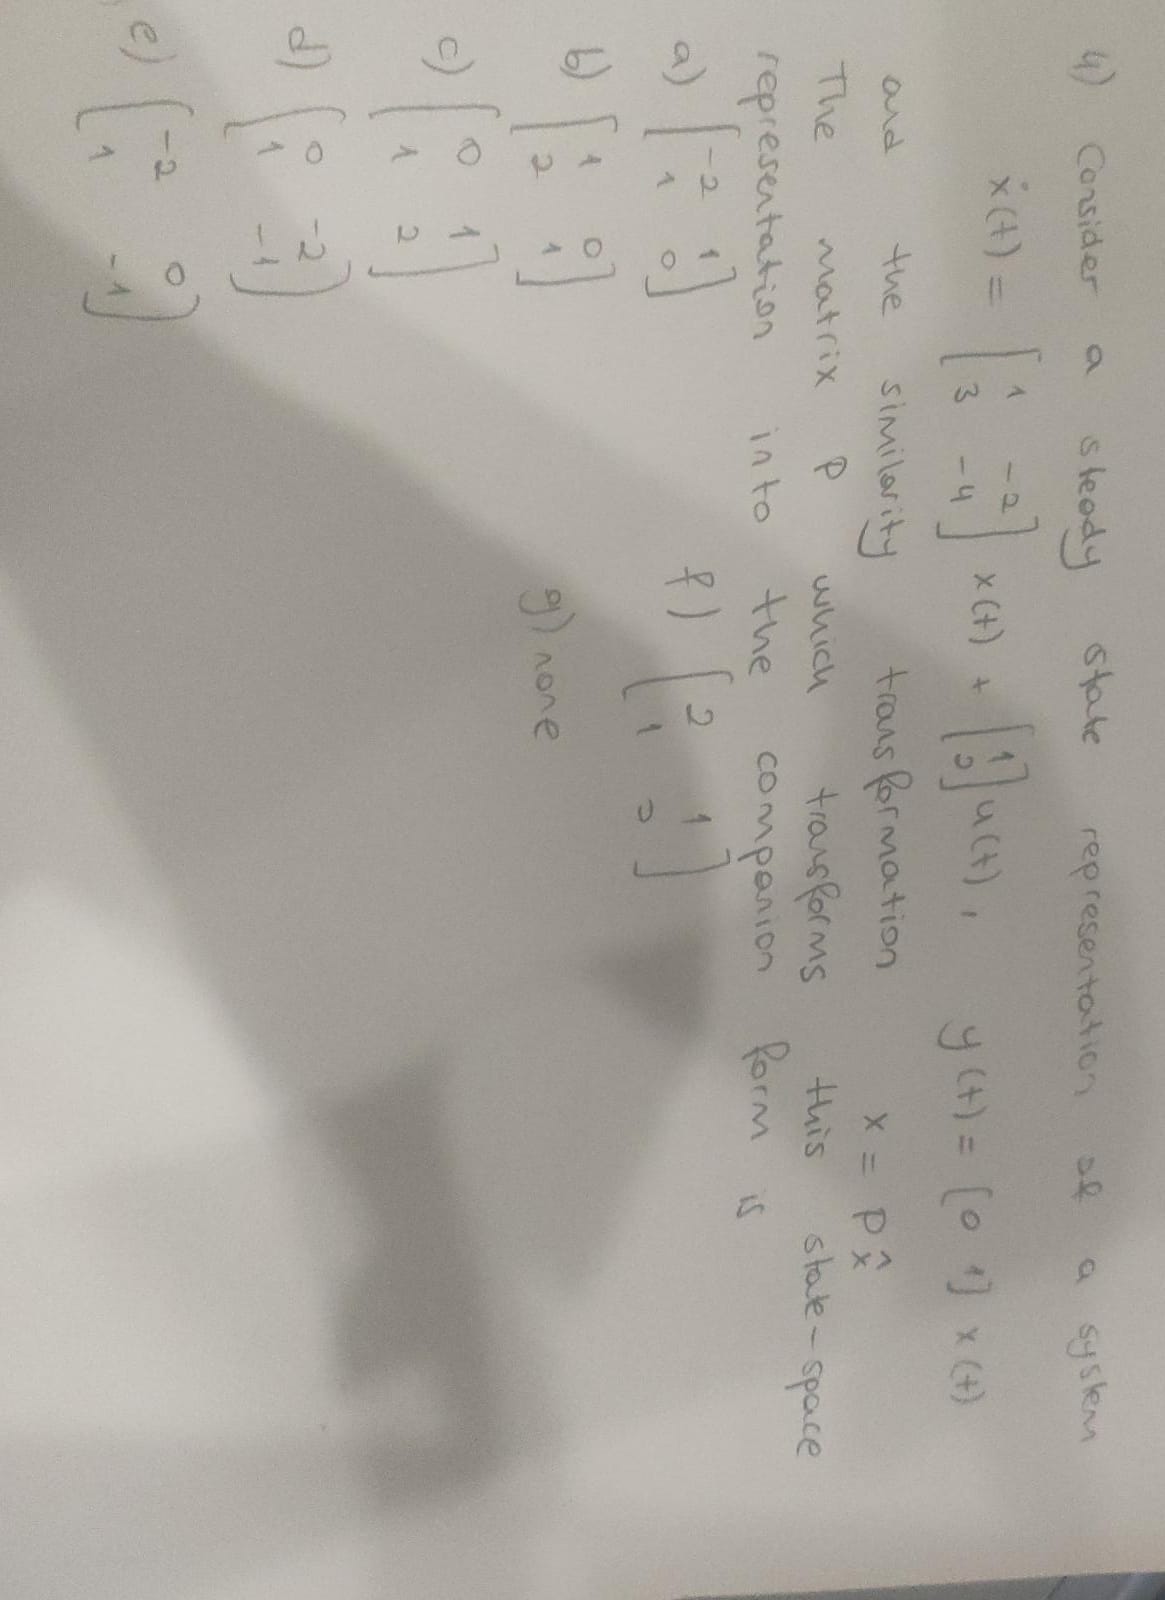 4) Consider a steady state representation of a system
ẋ(t) = [1 -2; 3 -4] x(t) + [1; 0] u(t), y(t) = [0 1] x(t)
and the similarity transformation x = Px̂
The matrix P which transforms this state-space
representation into the companion form is
a) [-2 1; 1 0]
b) [1 0; 2 1]
c) [0 1; 1 2]
d) [0 -2; 1 -1]
e) [-2 0; 1 -1]
f) [2 1; 1 0]
g) none